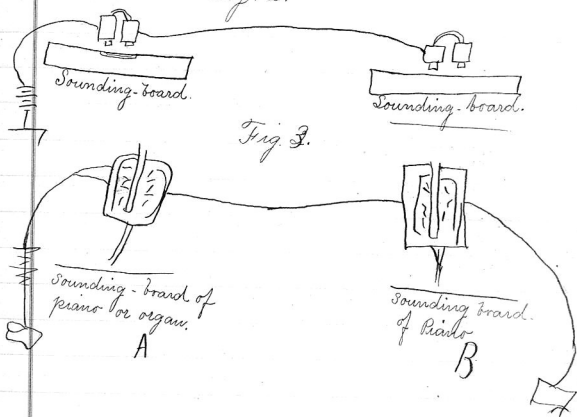 Sounding-board.
Sounding-board.
Fig. 3.
Sounding-board of
piano or organ.
A
Sounding board.
of Piano
B